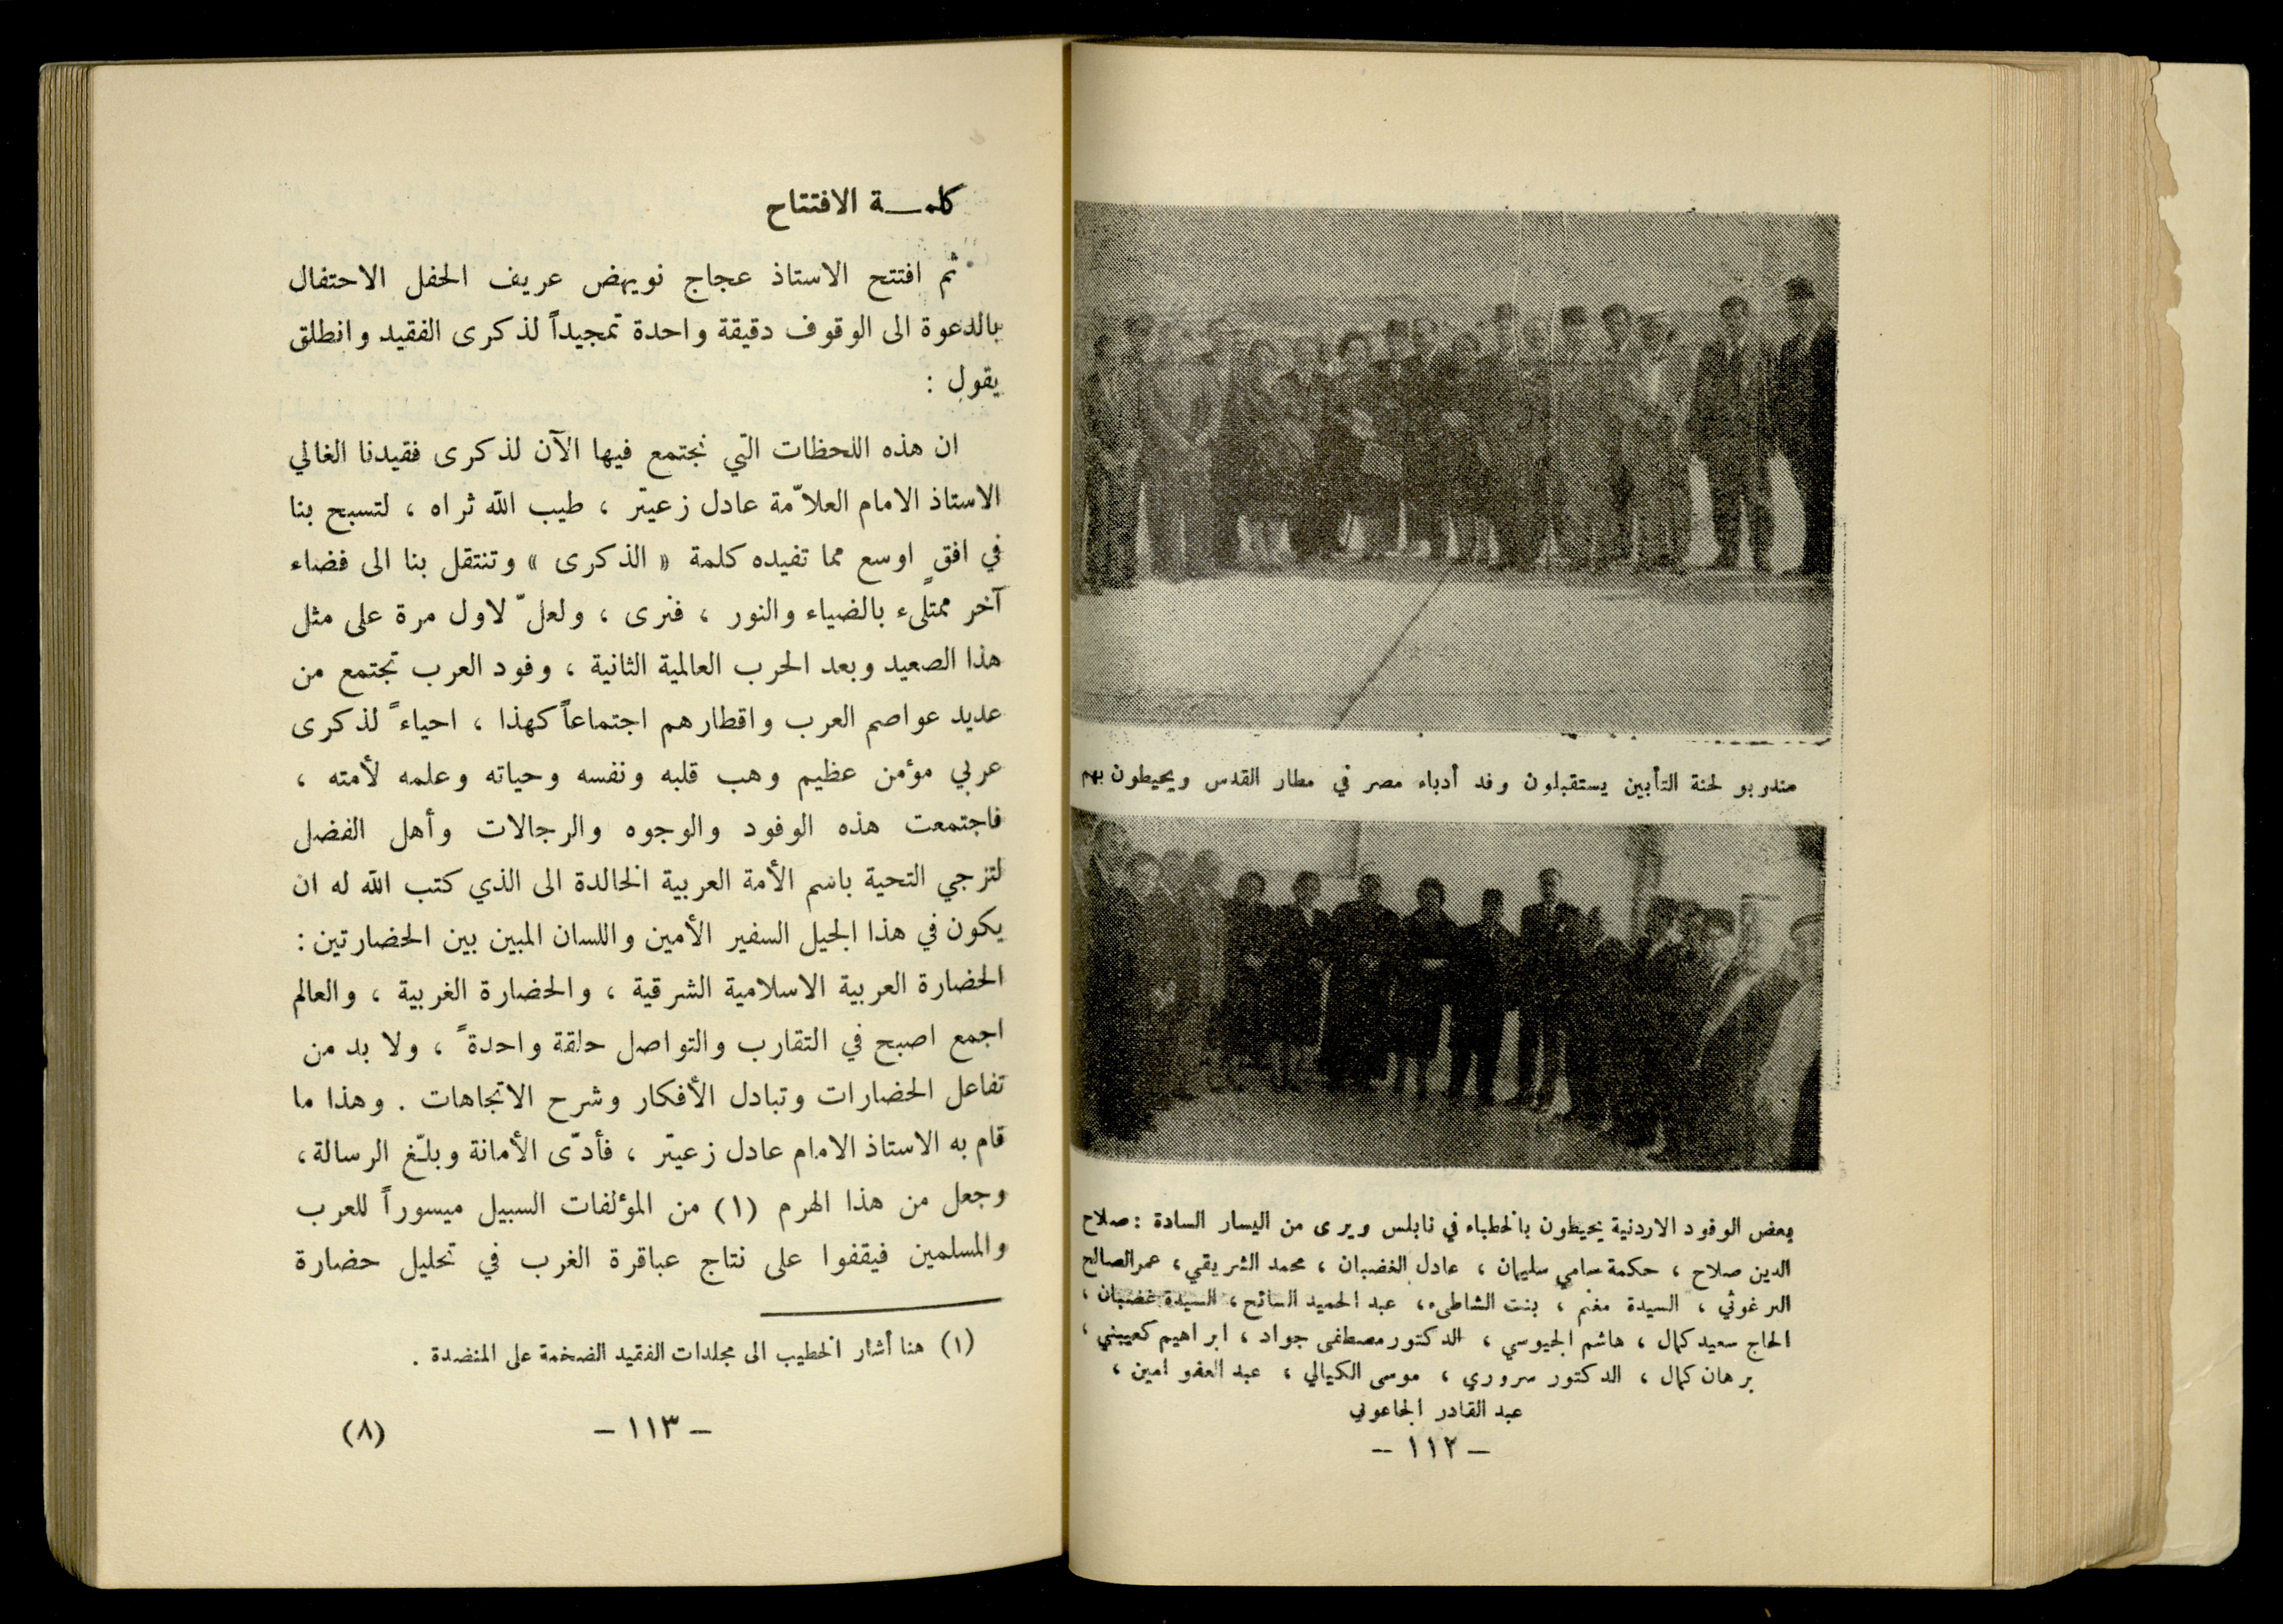 مندوبو لجنة التأبين يستقبلون وفد أدباء مصر في مطار القدس ويحيطون بهم
بعض الوفود الاردنية يحيطون بالخطباء في نابلس ويرى من اليسار السادة : صلاح
الدين صلاح ، حكمة سامي سليمان ، عادل الغضبان ، محمد الشريقي ، عمر الصالح
البرغوثي ، السيدة مغنم ، بنت الشاطىء ، عبد الحميد السائح ، السيدة غضبان ،
الحاج سعيد كمال ، هاشم الجيوسي ، الدكتور مصطفى جواد ، ابراهيم كعيبني ،
برهان كمال ، الدكتور سروري ، موسى الكيالي ، عبد العفو امين ،
عبد القادر الجاعوني
– ١١٢ –
كلمـــة الافتتاح
ثم افتتح الاستاذ عجاج نويهض عريف الحفل الاحتفال
بالدعوة الى الوقوف دقيقة واحدة تمجيداً لذكرى الفقيد وانطلق
يقول :
ان هذه اللحظات التي نجتمع فيها الآن لذكرى فقيدنا الغالي
الاستاذ الامام العلاّمة عادل زعيتر ، طيب الله ثراه ، لتسبح بنا
في افقٍ اوسع مما تفيده كلمة « الذكرى » وتنتقل بنا الى فضاء
آخر ممتلىء بالضياء والنور ، فنرى ، ولعلّ لاول مرة على مثل
هذا الصعيد وبعد الحرب العالمية الثانية ، وفود العرب تجتمع من
عديد عواصم العرب واقطارهم اجتماعاً كهذا ، احياءً لذكرى
عربي مؤمن عظيم وهب قلبه ونفسه وحياته وعلمه لأمته ،
فاجتمعت هذه الوفود والوجوه والرجالات وأهل الفضل
لتزجي التحية باسم الأمة العربية الخالدة الى الذي كتب الله له ان
يكون في هذا الجيل السفير الأمين واللسان المبين بين الحضارتين :
الحضارة العربية الاسلامية الشرقية ، والحضارة الغربية ، والعالم
اجمع اصبح في التقارب والتواصل حلقة واحدةً ، ولا بد من
تفاعل الحضارات وتبادل الأفكار وشرح الاتجاهات . وهذا ما
قام به الاستاذ الامام عادل زعيتر ، فأدّى الأمانة وبلّغ الرسالة ،
وجعل من هذا الهرم (١) من المؤلفات السبيل ميسوراً للعرب
والمسلمين فيقفوا على نتاج عباقرة الغرب في تحليل حضارة
(١) هنا أشار الخطيب الى مجلدات الفقيد الضخمة على المنضدة .
– ١١٣ –
(٨)